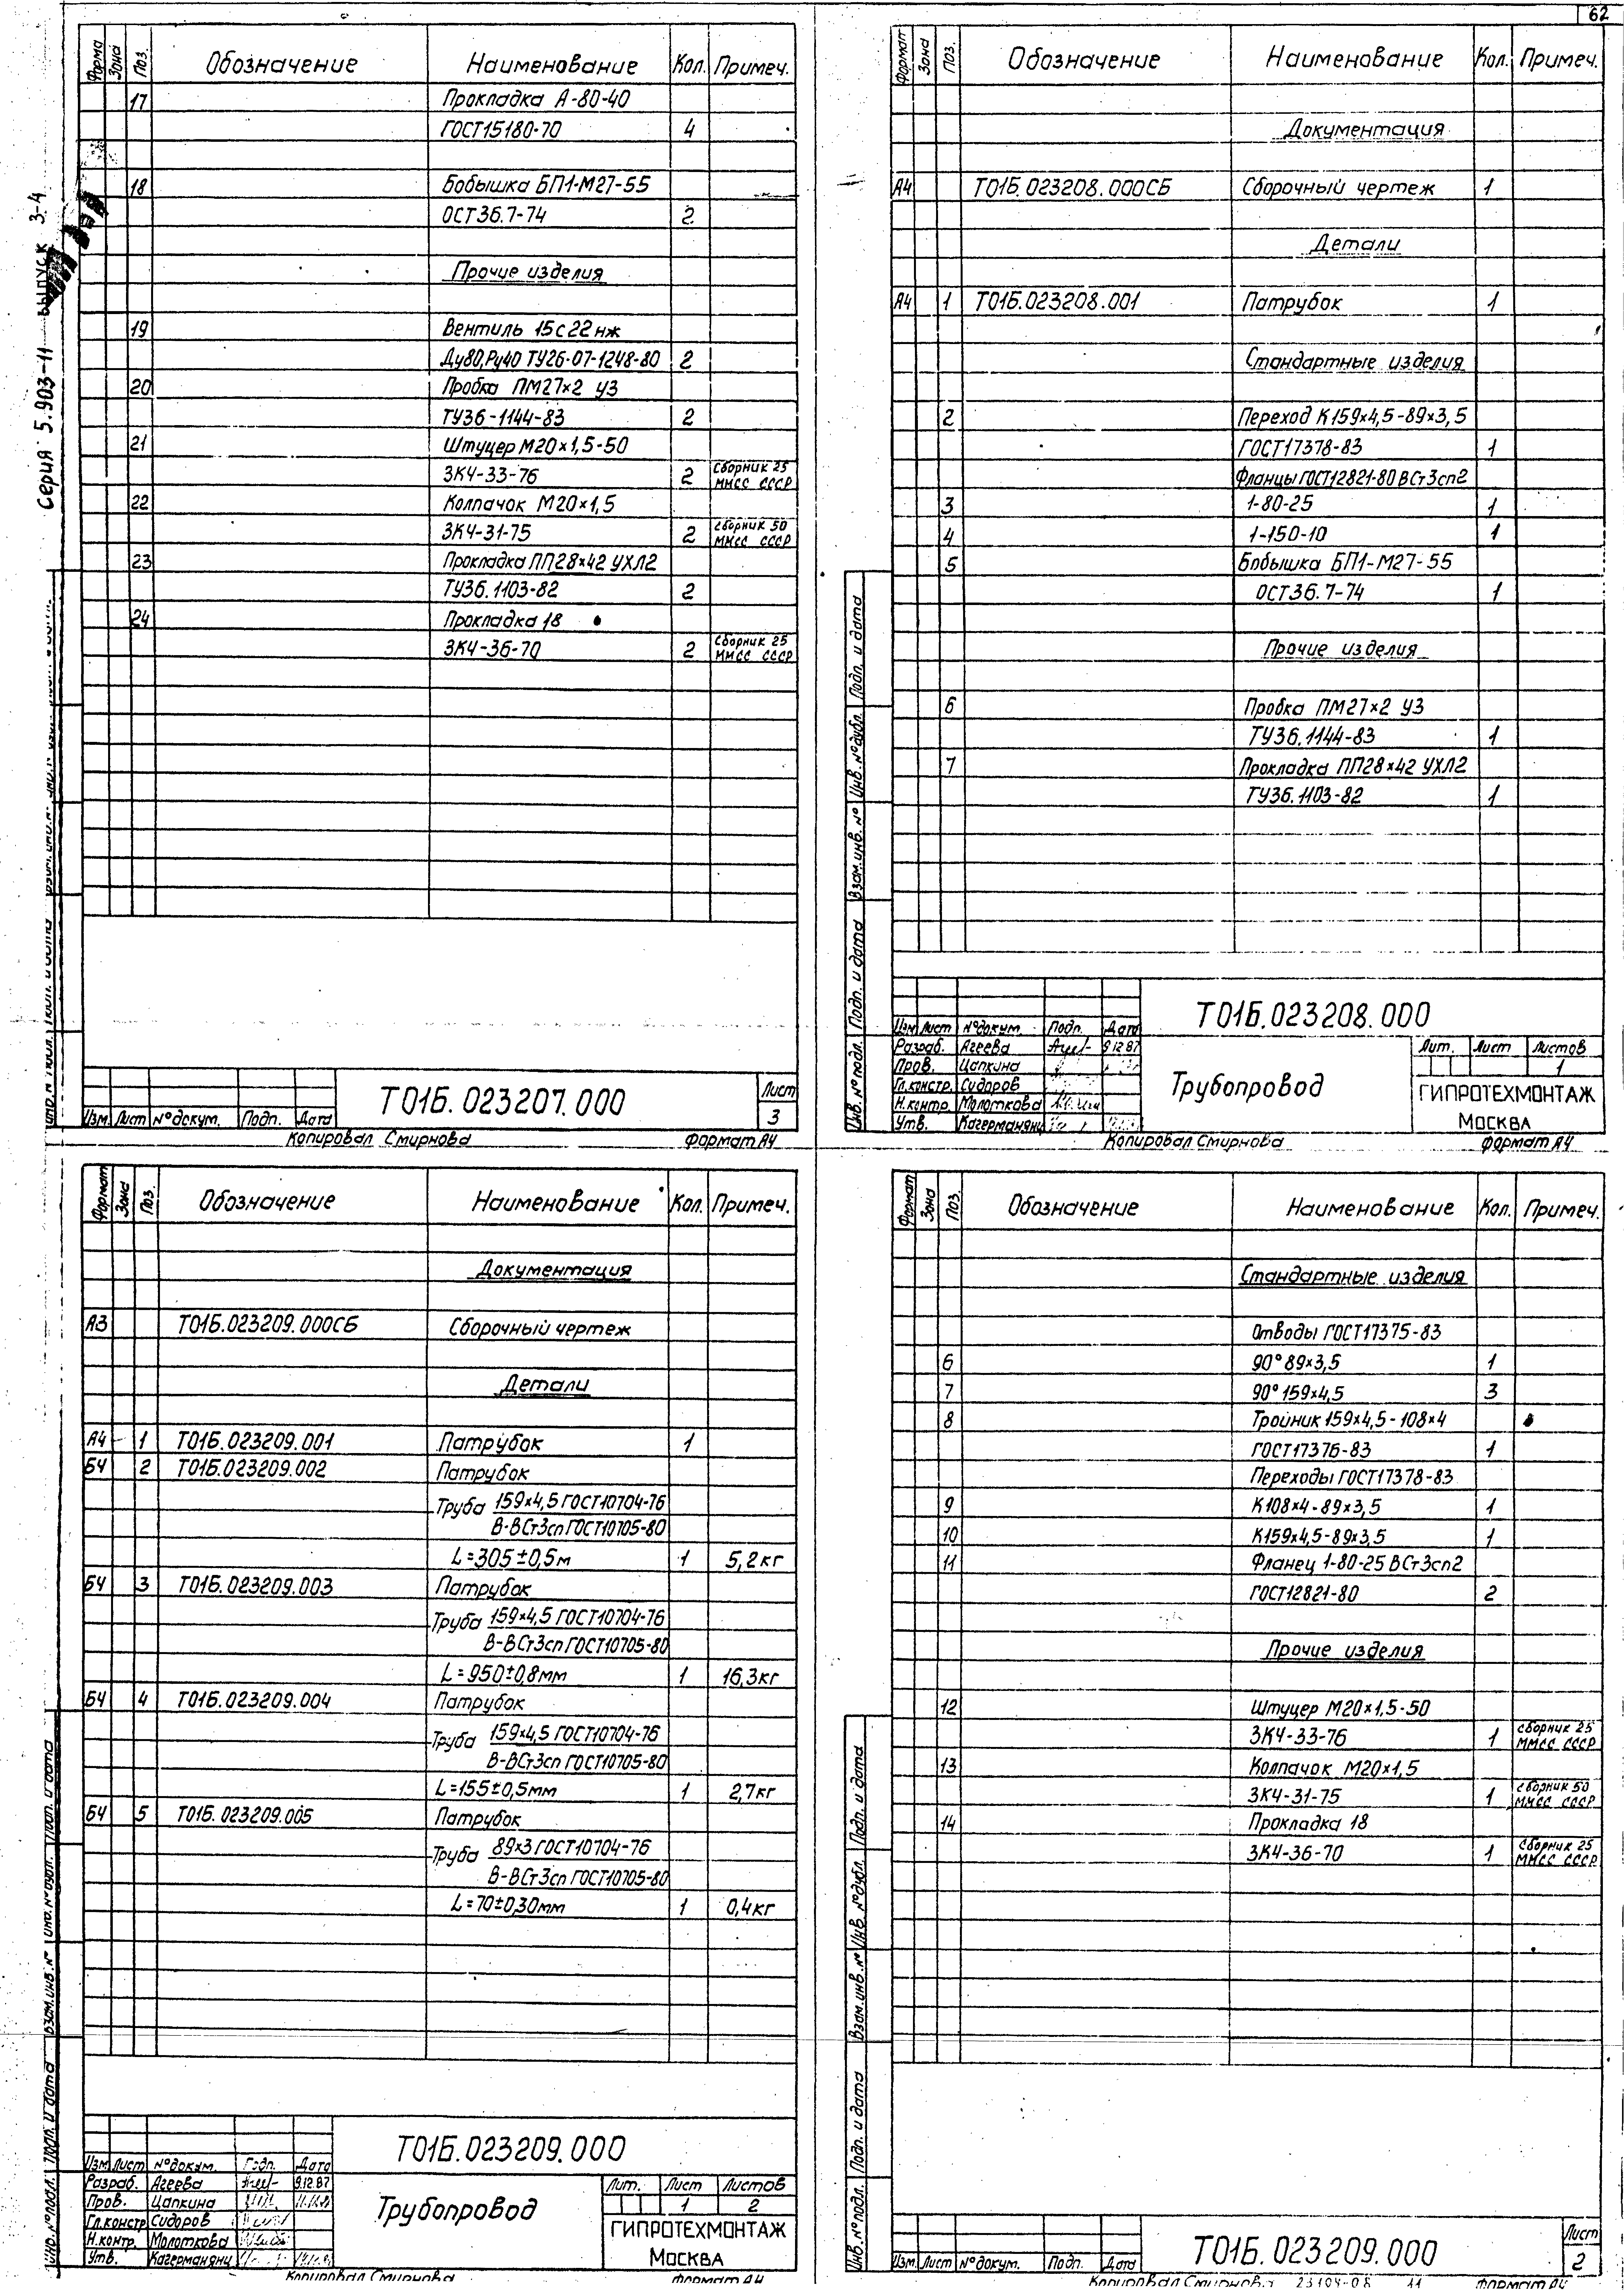 62
Серия 5.903-11 выпуск 3-4
Форма Зона Поз. Обозначение Наименование Кол. Примеч.
17 Прокладка А-80-40
ГОСТ15180-70 4
18 Бобышка БП1-М27-55
ОСТ36.7-74 2
Прочие изделия
19 Вентиль 15с22нж
Ду80,Ру40 ТУ26-07-1248-80 2
20 Пробка ПМ27×2 У3
ТУ36-1144-83 2
21 Штуцер М20×1,5-50
ЗК4-33-76 2 Сборник 25 ММСС СССР
22 Колпачок М20×1,5
ЗК4-31-75 2 сборник 50 ММСС СССР
23 Прокладка ПП28×42 УХЛ2
ТУ36.1103-82 2
24 Прокладка 18
ЗК4-36-70 2 Сборник 25 ММСС СССР
Т01Б.023207.000
Лист
3
Изм. Лист №докум. Подп. Дата
Копировал Смирнова Формат А4
Формат Зона Поз. Обозначение Наименование Кол. Примеч.
Документация
А4 Т01Б.023208.000СБ Сборочный чертеж 1
Детали
А4 1 Т01Б.023208.001 Патрубок 1
Стандартные изделия
2 Переход К159×4,5-89×3,5
ГОСТ17378-83 1
Фланцы ГОСТ12821-80 ВСт3сп2
3 1-80-25 1
4 1-150-10 1
5 Бобышка БП1-М27-55
ОСТ36.7-74 1
Прочие изделия
6 Пробка ПМ27×2 У3
ТУ36.1144-83 1
7 Прокладка ПП28×42 УХЛ2
ТУ36.1103-82 1
Инв.№подл. Подп. и дата Взам.инв.№ Инв.№дубл. Подп. и дата
Т01Б.023208.000
Изм Лист №докум. Подп. Дата
Разраб. Агеева 9.12.87
Пров. Цапкина
Гл.констр. Сидоров
Н.контр. Молоткова
Утв. Кагерманянц
Трубопровод
Лит. Лист Листов
1
ГИПРОТЕХМОНТАЖ
МОСКВА
Копировал Смирнова Формат А4
Формат Зона Поз. Обозначение Наименование Кол. Примеч.
Документация
А3 Т01Б.023209.000СБ Сборочный чертеж
Детали
А4 1 Т01Б.023209.001 Патрубок 1
БЧ 2 Т01Б.023209.002 Патрубок
Труба 159×4,5 ГОСТ10704-76
В-ВСт3сп ГОСТ10705-80
L=305±0,5м 1 5,2кг
БЧ 3 Т01Б.023209.003 Патрубок
Труба 159×4,5 ГОСТ10704-76
В-ВСт3сп ГОСТ10705-80
L=950±0,8мм 1 16,3кг
БЧ 4 Т01Б.023209.004 Патрубок
Труба 159×4,5 ГОСТ10704-76
В-ВСт3сп ГОСТ10705-80
L=155±0,5мм 1 2,7кг
БЧ 5 Т01Б.023209.005 Патрубок
Труба 89×3 ГОСТ10704-76
В-ВСт3сп ГОСТ10705-80
L=70±0,30мм 1 0,4кг
Инв.№подл. Подп. и дата Взам.инв.№ Инв.№дубл. Подп. и дата
Т01Б.023209.000
Изм Лист №докум. Подп. Дата
Разраб. Агеева 9.12.87
Пров. Цапкина
Гл.констр Сидоров
Н.контр. Молоткова
Утв. Кагерманянц
Трубопровод
Лит. Лист Листов
1 2
ГИПРОТЕХМОНТАЖ
МОСКВА
Копировал Смирнова Формат А4
Формат Зона Поз. Обозначение Наименование Кол. Примеч.
Стандартные изделия
Отводы ГОСТ17375-83
6 90°89×3,5 1
7 90°159×4,5 3
8 Тройник 159×4,5-108×4
ГОСТ17376-83 1
Переходы ГОСТ17378-83
9 К108×4-89×3,5 1
10 К159×4,5-89×3,5 1
11 Фланец 1-80-25 ВСт3сп2
ГОСТ12821-80 2
Прочие изделия
12 Штуцер М20×1,5-50
ЗК4-33-76 1 сборник 25 ММСС СССР
13 Колпачок М20×1,5
ЗК4-31-75 1 сборник 50 ММСС СССР
14 Прокладка 18
ЗК4-36-70 1 Сборник 25 ММСС СССР
Инв.№подл. Подп. и дата Взам.инв.№ Инв.№дубл. Подп. и дата
Т01Б.023209.000
Лист
2
Изм Лист №докум. Подп. Дата
Копировал Смирнова 23104-08 11 Формат А4